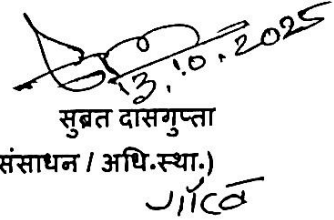 13.10.2025
सुब्रत दासगुप्ता
संसाधन / अधि.स्था.)